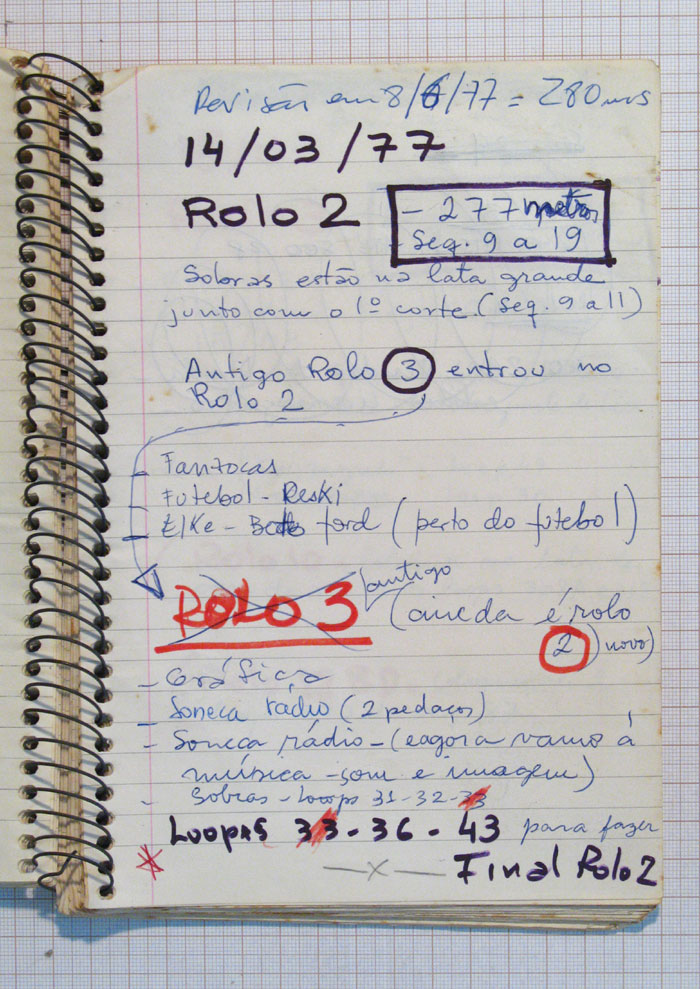 Revisão em 8/6/77 = 280 mts
14/03/77
Rolo 2
- 277 metros
Seq. 9 a 19
Sobras estão na lata grande
junto com o 1º corte. (seq. 9 a 11)
Antigo Rolo 3 entrou no
Rolo 2
- Fantocas
- Futebol - Reski
- Elke - ford (perto do futebol)
ROLO 3 antigo (ainda é rolo
2 novo)
- Gráfica
- Soneca rádio (2 pedaços)
- Soneca rádio - (e agora vamos à
música - som e imagem)
- Sobras - Loops 31-32-33
Loops 33 - 36 - 43 para fazer
—x— Final Rolo 2